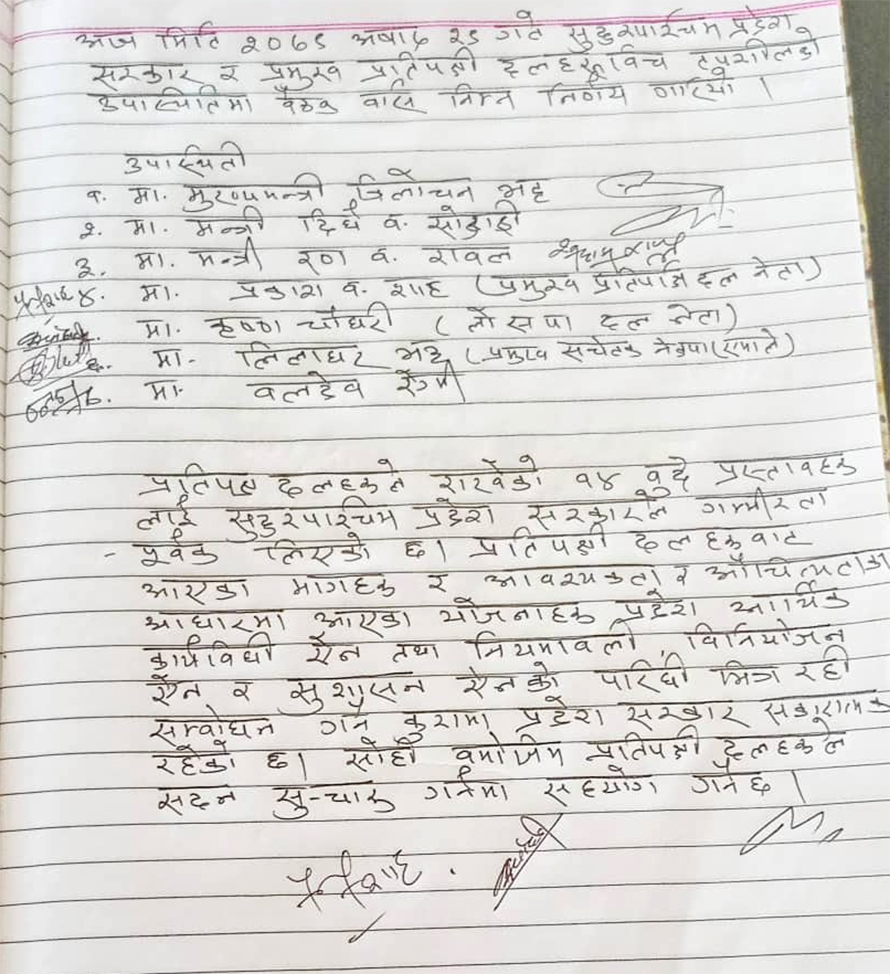 आज मिति २०७९ अषाढ २९ गते सुदुरपश्चिम प्रदेश
सरकार र प्रमुख प्रतिपक्षी दलहरू विच तपशीलको
उपास्थितिमा बैठक वसि निम्न निर्णय गरियो ।
उपास्थिती
१. मा. मुख्यमन्त्री त्रिलोचन भट्ट
२. मा. मन्त्री दिर्घ व. सोडारी
३. मा. मन्त्री रणा व. रावल
४. मा. प्रकाश व. शाह (प्रमुख प्रतिपक्षि दल नेता)
मा. कृष्णा चौधरी ( लोसपा दल नेता)
मा. लिलाधर भट्ट (प्रमुख सचेतक नेकपा (एमाले)
मा. वलदेव रेग्मी
प्रतिपक्ष दलहरूले राखेको १४ वुदे प्रस्तावहरू
लाई सुदुरपश्चिम प्रदेश सरकारले गम्भीरता
- पूर्वक लिएको छ। प्रतिपक्षी दलहरूवाट
आएका मागहरू र आवश्यकता र औचित्यताका
आधारमा आएका योजनाहरू प्रदेश आर्थिक
कार्यविधी ऐन तथा नियमावली, विनियोजन
ऐन र सुशासन ऐनको परिधी भित्र रही
सम्वोधन गर्ने कुरामा प्रदेश सरकार सकारात्मक
रहेको छ। सोही वमोजिम प्रतिपक्षी दलहरूले
सदन सु-चारू गर्नमा सहयोग गर्नेछ ।